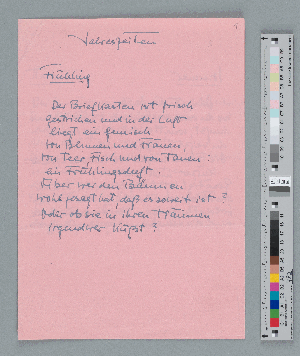 Jahreszeiten
Frühling
Der Briefkasten ist frisch
gestrichen und in der Luft
liegt ein Gemisch
von Blumen und Frauen,
von Teer, Fisch und von Tauen:
ein Frühlingsduft.
Aber wer den Blumen
wohl gesagt hat, daß es soweit ist?
Oder ob sie in ihren Träumen
irgendwer küßt?